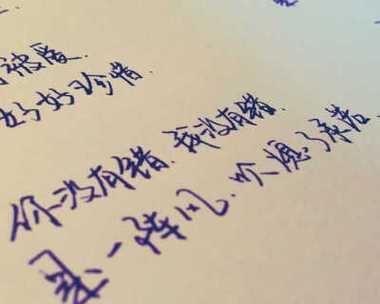 被爱.
好好珍惜.
你没有错.我没有错.
是一阵风.吹熄了承诺.